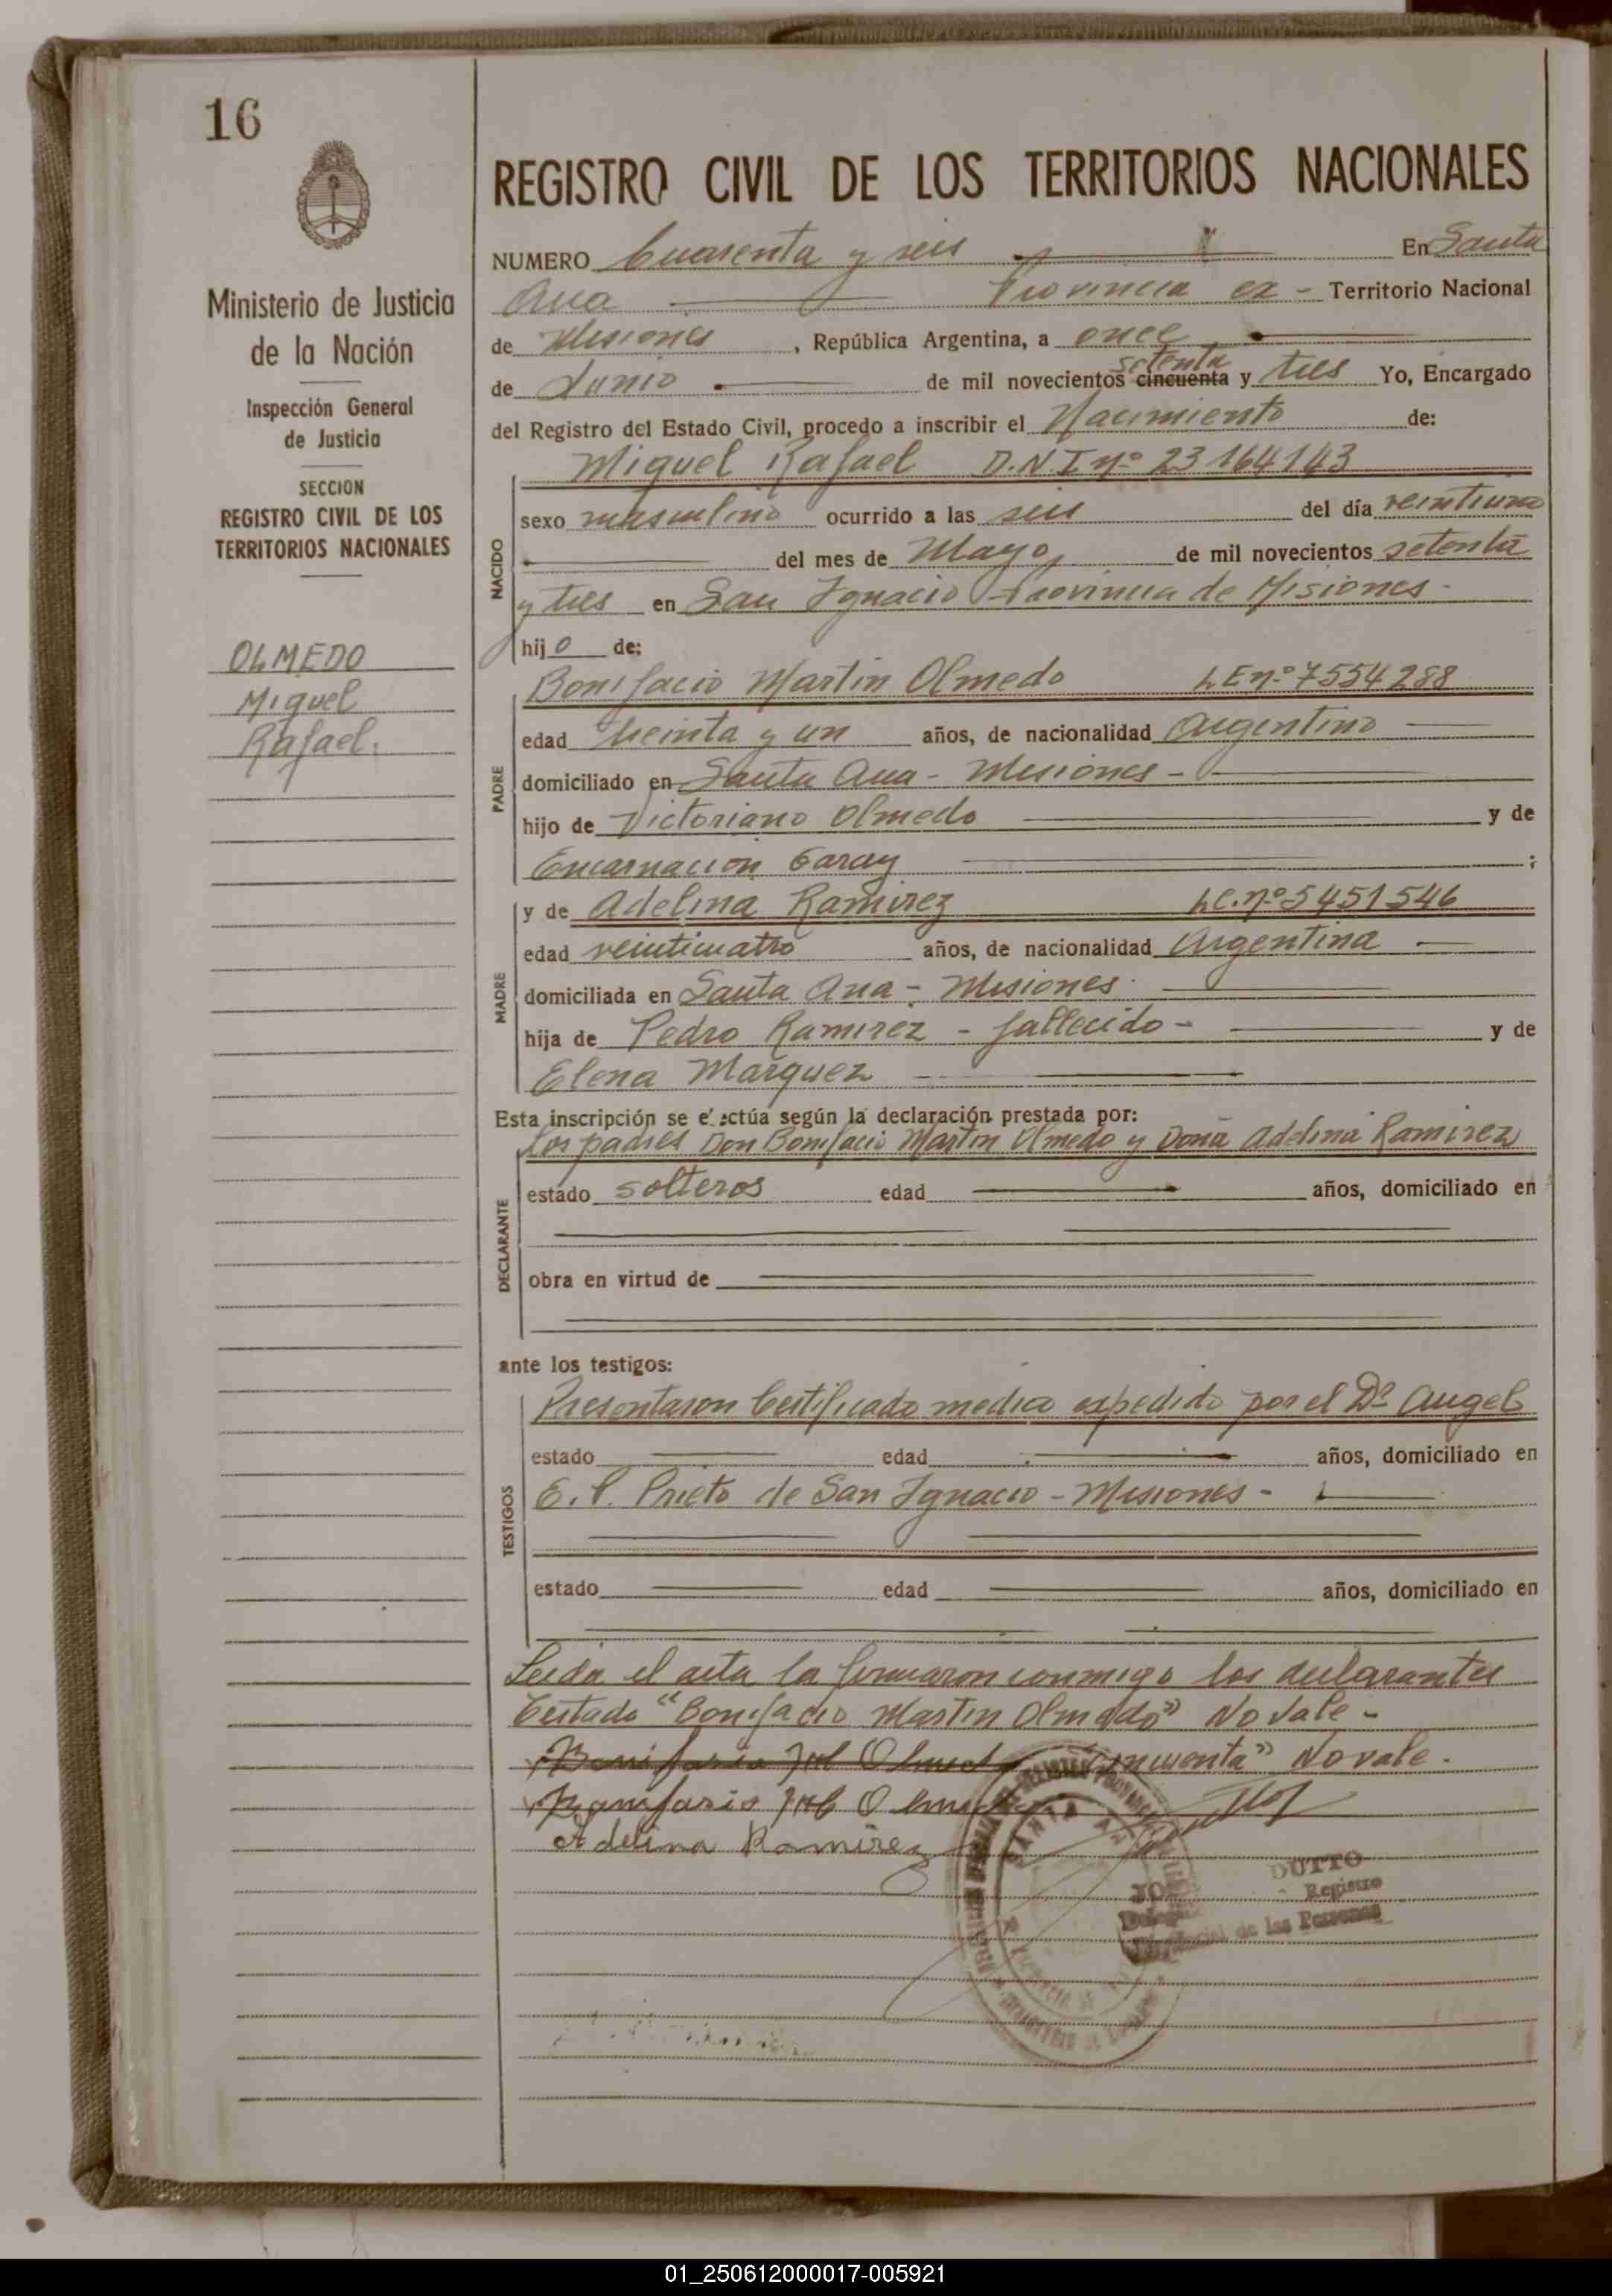 16
Ministerio de Justicia
de la Nación
Inspección General
de Justicia
SECCION
REGISTRO CIVIL DE LOS
TERRITORIOS NACIONALES
OLMEDO
Miguel
Rafael.
REGISTRO CIVIL DE LOS TERRITORIOS NACIONALES
NUMERO Cuarenta y seis En Santa
Ana Provincia ex - Territorio Nacional
de Misiones, República Argentina, a once
de Junio de mil novecientos cincuenta setenta y tres Yo, Encargado
del Registro del Estado Civil, procedo a inscribir el Nacimiento de:
Miguel Rafael D.N.I. nº 23164143
NACIDO
sexo masculino ocurrido a las seis del día veintiuno
del mes de Mayo, de mil novecientos setenta
y tres en San Ignacio Provincia de Misiones -
hijo de:
Bonifacio Martin Olmedo L E nº 7554288
PADRE
edad treinta y un años, de nacionalidad Argentino
domiciliado en Santa Ana - Misiones -
hijo de Victoriano Olmedo y de
Encarnacion Garay ;
y de Adelina Ramirez L C. nº 5451546
MADRE
edad veinticuatro años, de nacionalidad Argentina
domiciliada en Santa Ana - Misiones
hija de Pedro Ramirez - fallecido - y de
Elena Marquez
Esta inscripción se efectúa según la declaración prestada por:
los padres Don Bonifacio Martin Olmedo y Doña Adelina Ramirez
DECLARANTE
estado solteros edad años, domiciliado en
obra en virtud de
ante los testigos:
TESTIGOS
Presentaron Certificado medico expedido por el Dr Angel
estado edad años, domiciliado en
E. P. Prieto de San Ignacio - Misiones -
estado edad años, domiciliado en
Leida el acta la firmaron conmigo los declarantes
Testado "Bonifacio Martin Olmedo" No vale -
cincuenta" No vale.
Adelina Ramirez
DUTTO
Registro
Provincial de las Personas
01_250612000017-005921